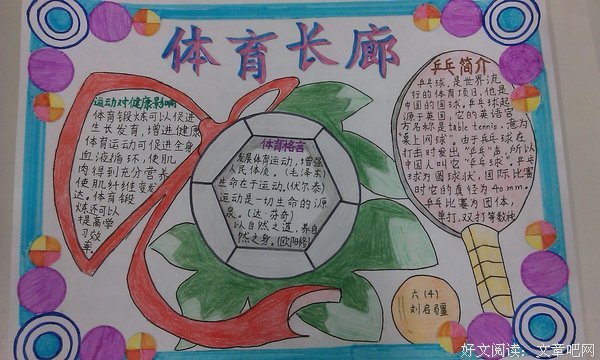 体育长廊
运动对健康影响
体育锻炼可以促进
生长发育,增进健康
体育运动可促进全身
血液循环,使肌
肉得到充分营养
使肌纤维变发
达。体育锻
炼还可以
提高学
习效
率。
体育格言
发展体育运动,增强
人民体质。(毛泽东)
生命在于运动。(伏尔泰)
运动是一切生命的源
泉。(达·芬奇)
以自然之道,养自
然之身。(欧阳修)
乒乓简介
乒乓球,是世界流
行的体育项目,他是
中国的国球,乒乓球起
源于英国,它的英语官
方名称是table tennis,意为
“桌上网球”。由于乒乓球在
打击时发出“乒乓”声,所以
中国人叫它“乒乓球”。乒乓
球为圆球状,国际比赛
时它的直径为40mm。
乒乓比赛为团体,
单打,双打等数种
六(4)
刘启疆
好文阅读:文章吧网